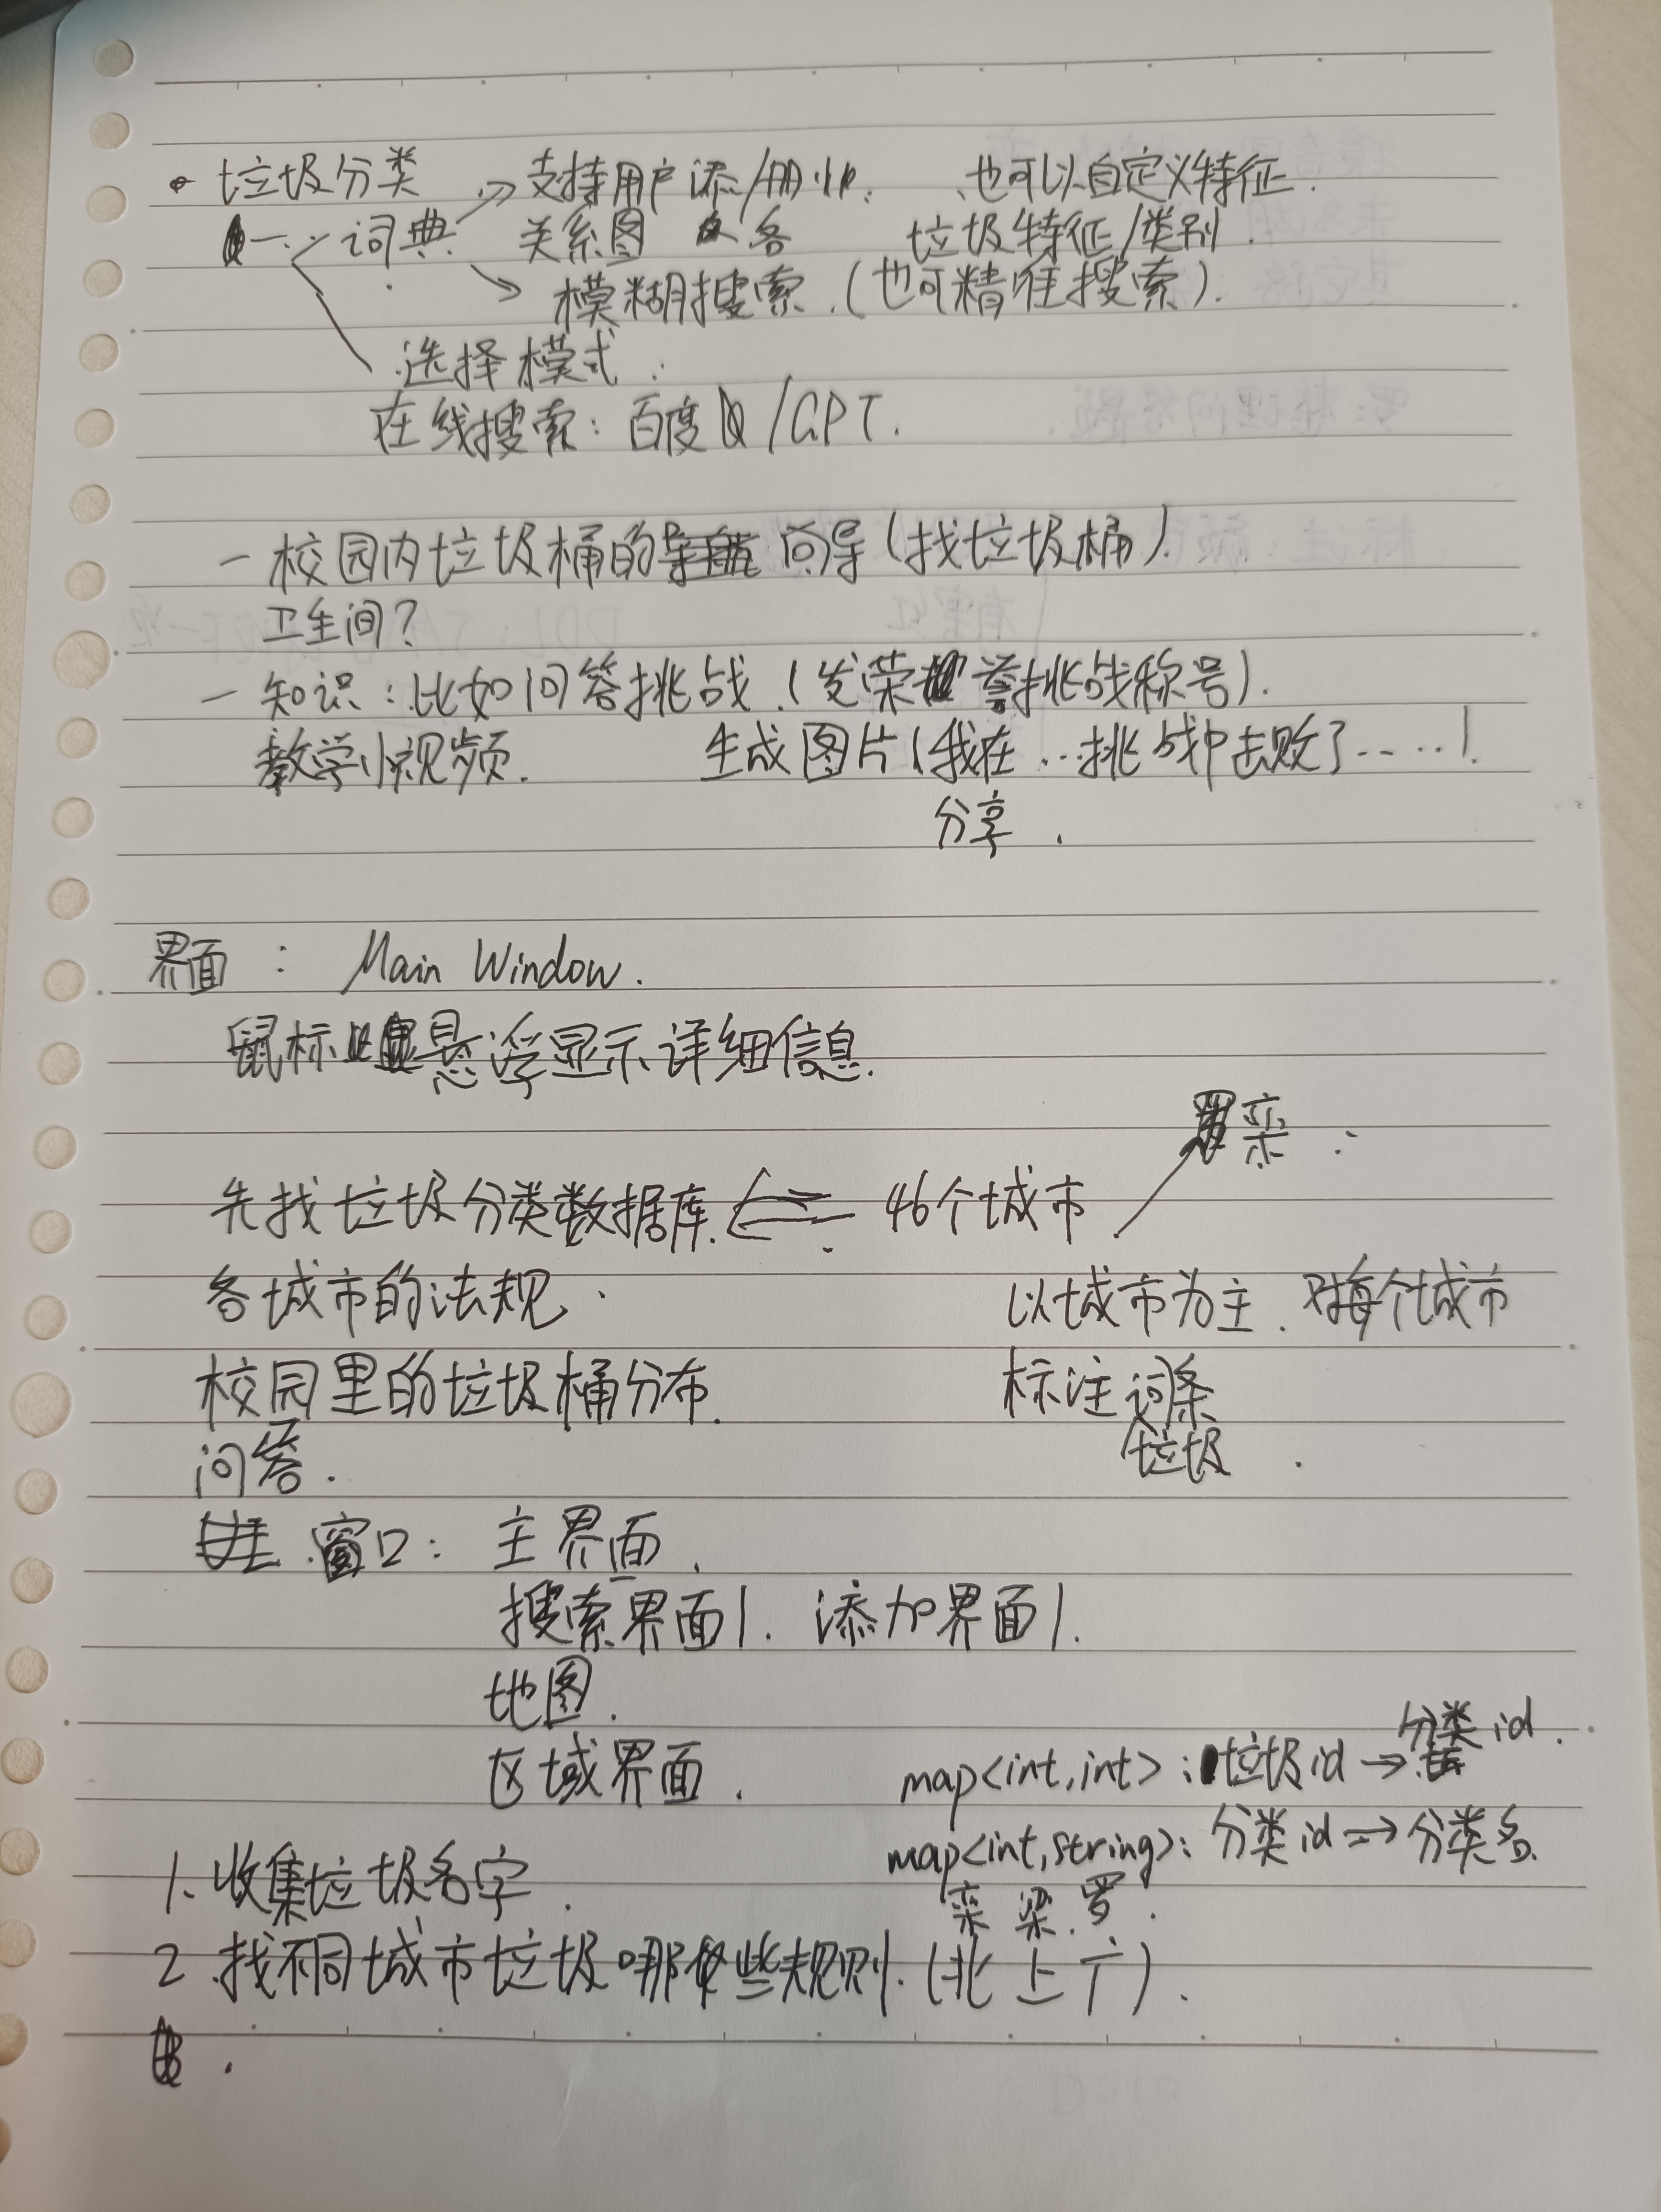 垃圾分类 支持用户添/删 也可以自定义特征.
词典 关系图 各 垃圾特征/类别.
模糊搜索.(也可精准搜索).
选择模式:
在线搜索: 百度/GPT.
- 校园内垃圾桶的 向导(找垃圾桶).
卫生间?
- 知识: 比如问答挑战.(发荣誉挑战称号).
教学小视频. 生成图片(我在...挑战中击败了.....).
分享.
界面: Main Window.
鼠标悬浮显示详细信息.
罗栾:
先找垃圾分类数据库. ⇐ 46个城市
各城市的法规. 以城市为主.对每个城市
校园里的垃圾桶分布. 标注词条
垃圾.
问答.
窗口: 主界面.
搜索界面1. 添加界面1.
地图.
区域界面.
分类id.
map<int,int>: 垃圾id →
map<int,string>: 分类id ⇒ 分类名.
1. 收集垃圾名字. 栾 梁.罗.
2. 找不同城市垃圾哪些规则.(北上广).